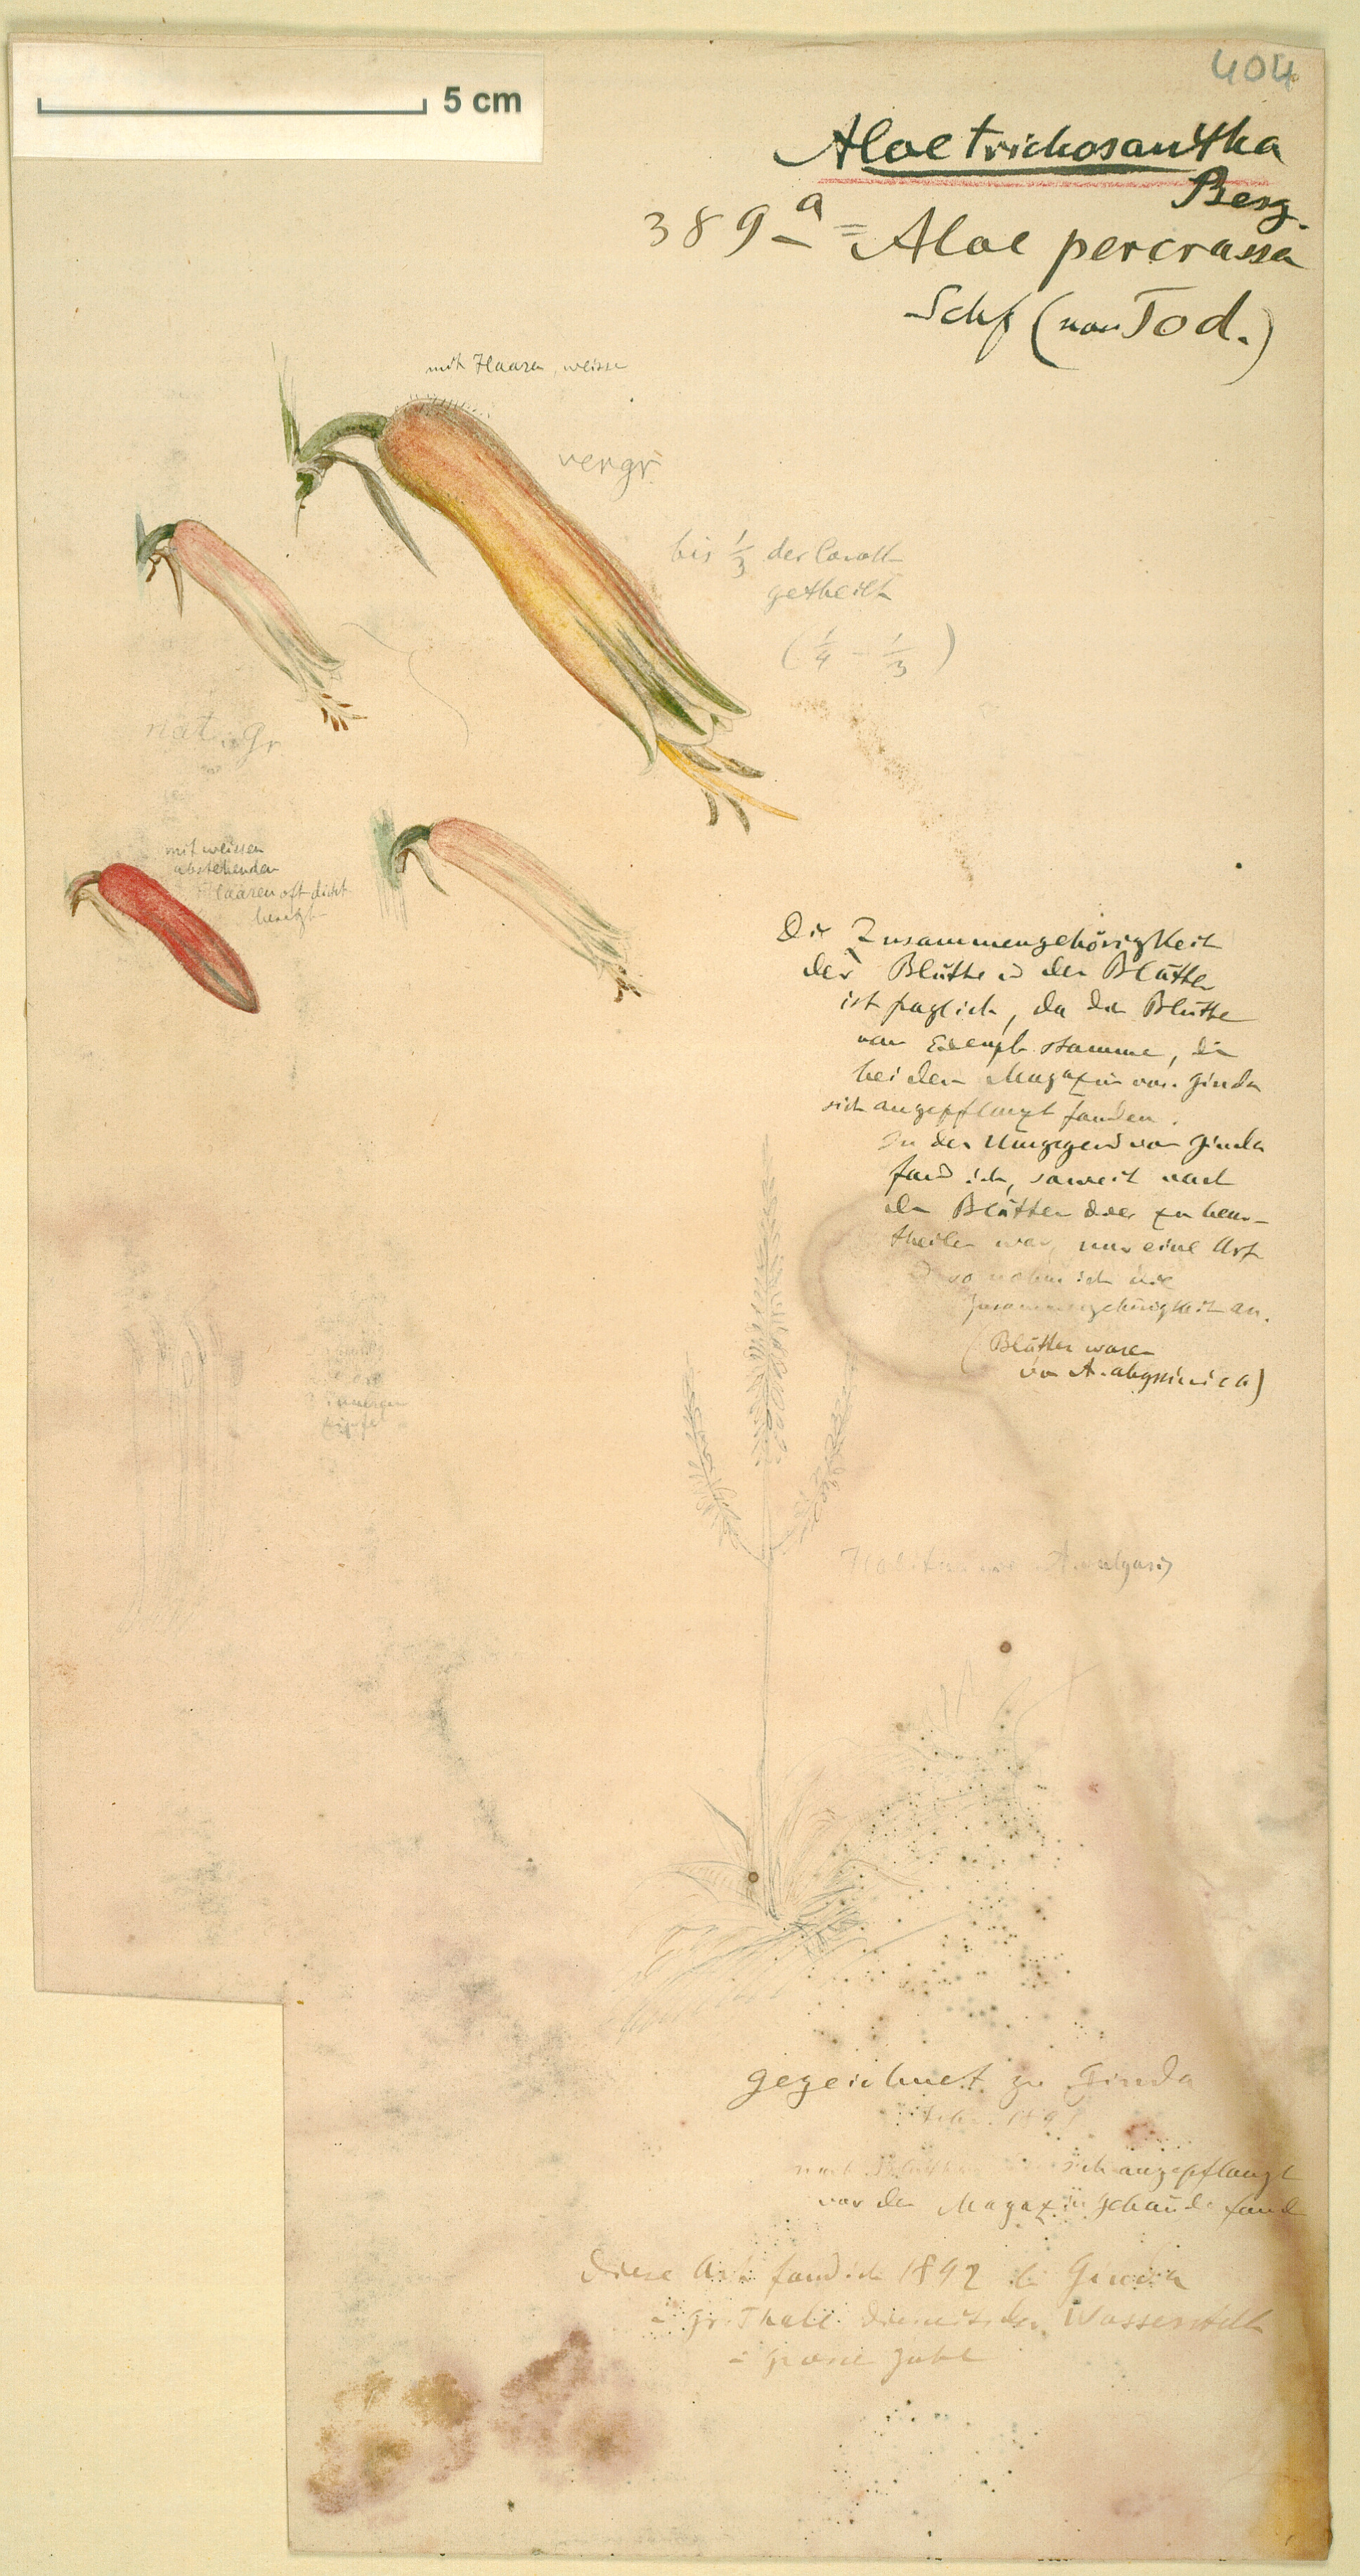 404
5 cm
Aloe trichosantha
Berg.
389a = Aloe percrassa
Schf (non Tod.)
mit Haaren, weisse
vergr.
bis 1/3 der Coroll
getheilt
(1/4 - 1/3)
nat. Gr.
mit weissen
abstehenden
Haaren oft dicht
besetzt
Die Zusammengehörigkeit
der Blüthe u der Blätter
ist fraglich, da die Blüthe
von Exempl. stamme, die
bei dem Magazin von Ginda
sich angepflanzt fanden.
In der Umgegend von Ginda
fand ich, soweit nach
den Blättern zu beur-
theilen war, nur eine Art
so nahm ich die
Zusammengehörigkeit an.
(Blätter waren
von A. abyssinica)
inneren
Zipfel
Habitus vulgaris
gezeichnet zu Ginda
189
nach sich angepflanzt
vor dem Magazin Gebäude fand
Diese Art fand ich 1892 Ginda
gr. Thale diesseits der Wasserstelle